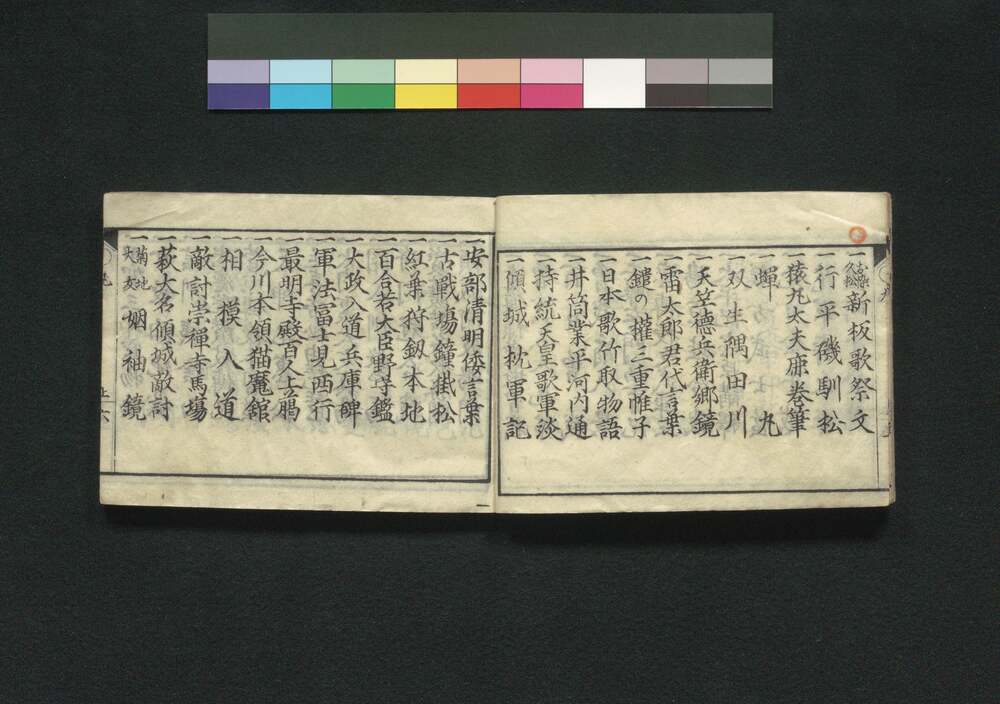 一お染久松新板歌祭文
一行平磯馴松
一猿丸太夫鹿巻筆
一蝉丸
一双生隅田川
一天竺徳兵衛郷鏡
一雷太郎君代言葉
一鑓の權三重帷子
一日本歌竹取物語
一井筒業平河内通
一持統天皇歌軍法
一傾城枕軍記
一安部清明倭言葉
一古戦場鐘掛松
一紅葉狩剱本地
一百合若大臣野守鑑
一大政入道兵庫碑
一軍法冨士見西行
一最明寺殿百人上﨟
一今川本領猫魔舘
一相模入道
一敵討崇禪寺馬塲
一萩大名傾城敵討
一姻袖鏡